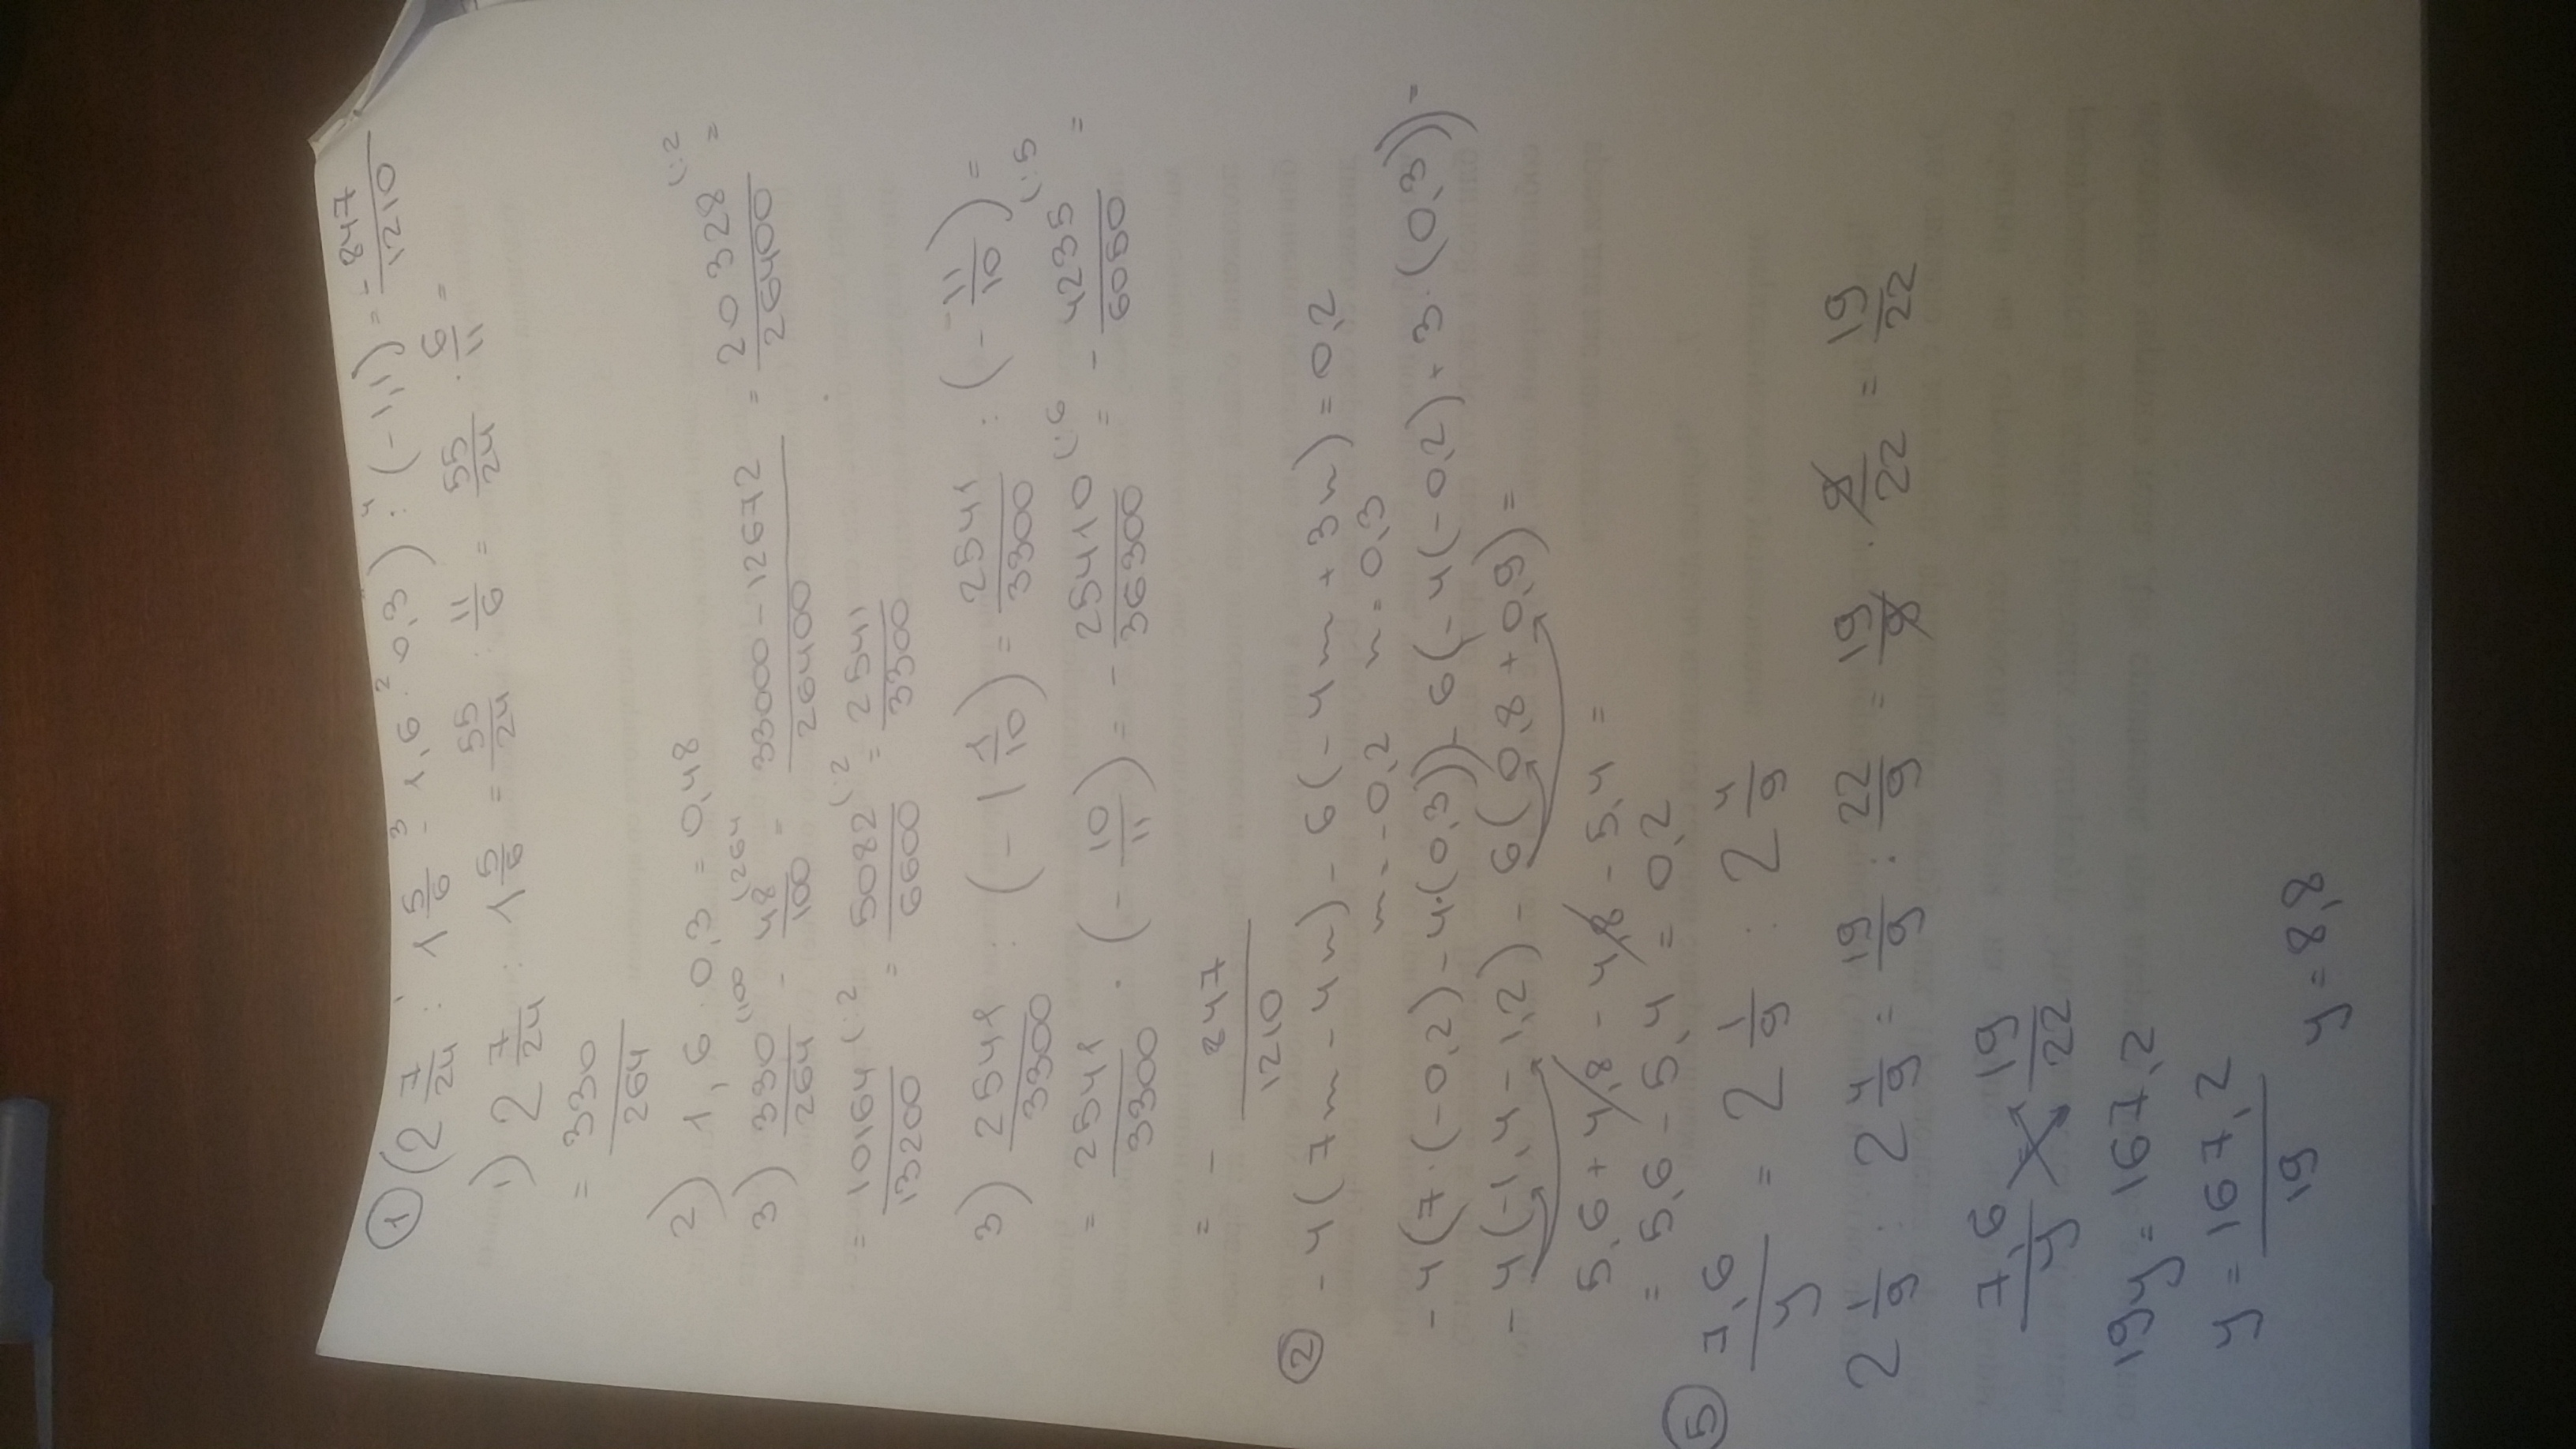 ① (2 7/24 : 1 5/6 - 1,6 · 0,3) : (-1,1) = - 847/1210
1) 2 7/24 : 1 5/6 = 55/24 : 11/6 = 55/24 · 6/11 =
= 330/264
2) 1,6 · 0,3 = 0,48
3) 330/264 (100 - 48/100 (264 = 33000 - 12672/26400 = 20328/26400 (:2 =
= 10164/13200 (:2 = 5082/6600 (:2 = 2541/3300
3) 2541/3300 : (-1 1/10) = 2541/3300 : (- 11/10) =
= 2541/3300 · (- 10/11) = - 25410/36300 (:6 = - 4235/6050 (:5 =
= - 847/1210
② -4(7m - 4n) - 6(-4m + 3n) = 0,2
m = -0,2 n = 0,3
-4(7·(-0,2) - 4·(0,3)) - 6(-4(-0,2) + 3·(0,3)) =
-4(-1,4 - 1,2) - 6(0,8 + 0,9) =
5,6 + 4,8 - 4,8 - 5,4 =
= 5,6 - 5,4 = 0,2
⑤ 7,6/y = 2 1/9 : 2 4/9
2 1/9 : 2 4/9 = 19/9 : 22/9 = 19/9 · 9/22 = 19/22
7,6/y 19/22
19y = 167,2
y = 167,2/19
y = 8,8